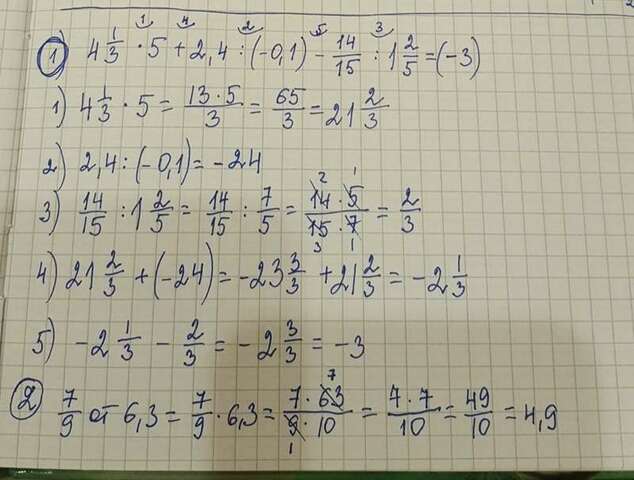 1) 4 1/3 · 5 + 2,4 : (-0,1) - 14/15 : 1 2/5 = (-3)
1) 4 1/3 · 5 = 13·5/3 = 65/3 = 21 2/3
2) 2,4 : (-0,1) = -24
3) 14/15 : 1 2/5 = 14/15 : 7/5 = 14·5/15·7 = 2/3
4) 21 2/3 + (-24) = -23 3/3 + 21 2/3 = -2 1/3
5) -2 1/3 - 2/3 = -2 3/3 = -3
2 7/9 от 6,3 = 7/9 · 6,3 = 7·63/9·10 = 7·7/10 = 49/10 = 4,9